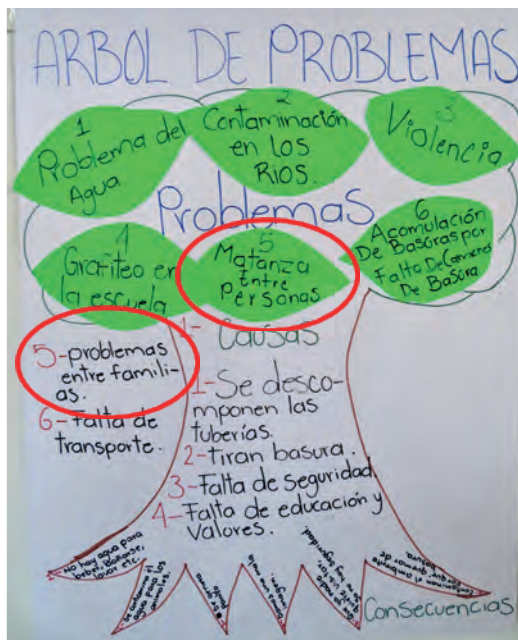 ARBOL DE PROBLEMAS
1
Problema del
Agua
2
Contaminación
en los
Rios.
3
Violencia
Problemas
4
Grafiteo en
la escuela
5
Matanza
Entre
Personas
6
Acomulación
De Basuras por
Falta De Camiones
De Basura
1- Causas
5-problemas
entre famili-
as.
6-Falta de
transporte.
1-Se desco-
mponen las
tuberías.
2-tiran basura.
3-Falta de seguridad
4-Falta de educación y
Valores.
No hay agua para
beber, Bañarse,
lavar etc.
Se contamina el
agua para los
animales.
Consecuencias